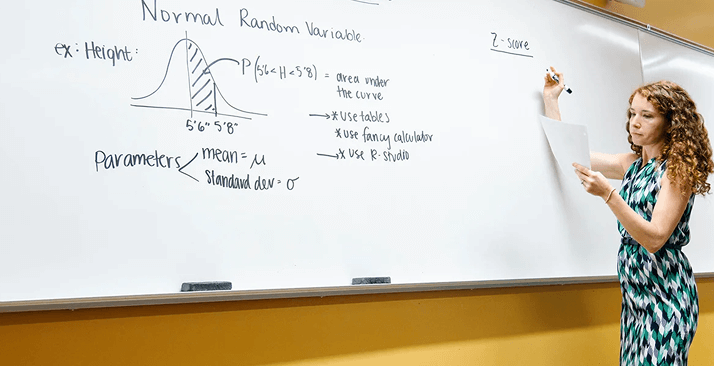 Normal Random Variable
ex: Height:
P(5'6<H<5'8) = area under
the curve
5'6" 5'8"
→ * use tables
* use fancy calculator
→ * use R-studio
Parameters < mean = μ
standard dev = σ
Z-score